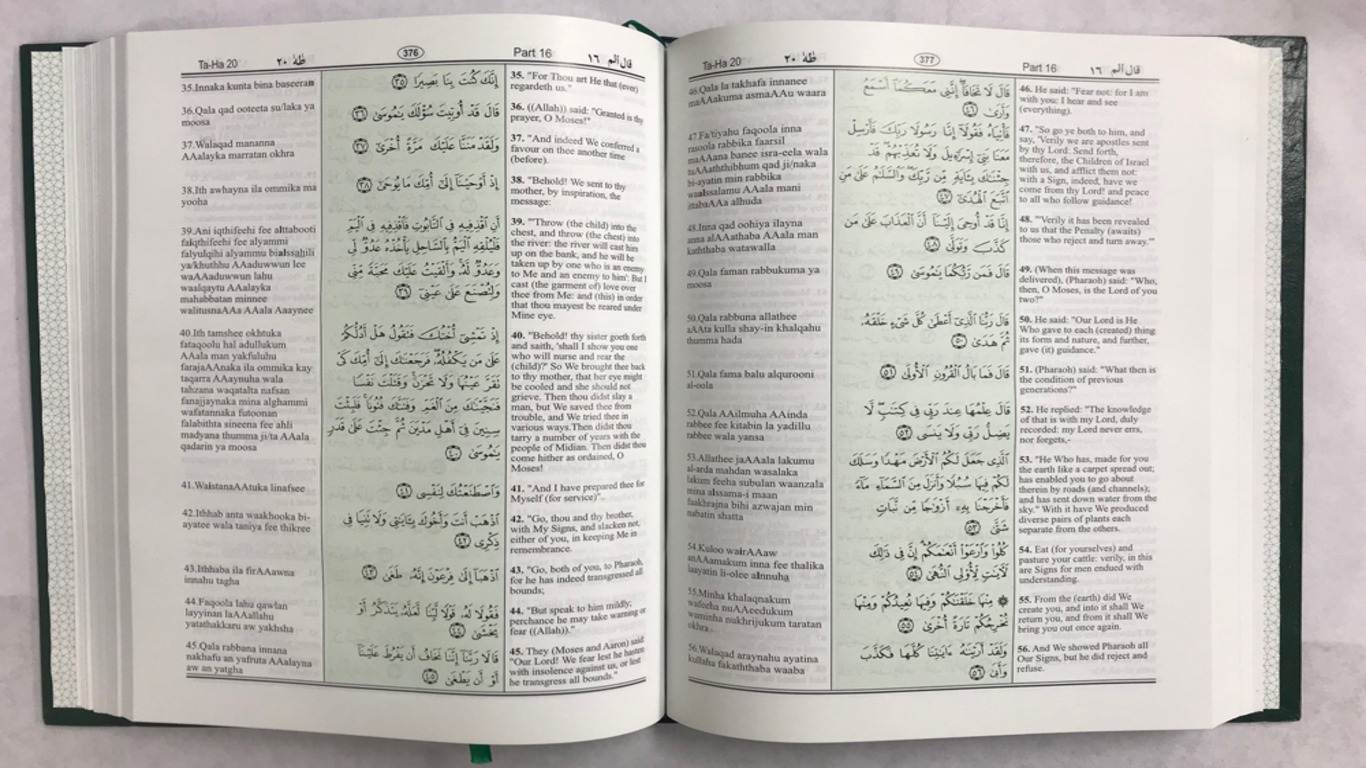 Ta-Ha 20
طه ٢٠
376
Part 16
قال الم ١٦
35.Innaka kunta bina baseeran
36.Qala qad ooteeta su/laka ya
moosa
37.Walaqad mananna
AAalayka marratan okhra
38.Ith awhayna ila ommika ma
yooha
39.Ani iqthifeehi fee alttabooti
faiqthifeehi fee alyammi
falyulqihi alyammu bialssahili
ya/khuthhu AAaduwwun lee
waAAaduwwun lahu
waalqaytu AAalayka
mahabbatan minnee
walitusnaAAa AAala Aaaynee
40.Ith tamshee okhtuka
fataqoolu hal adullukum
AAala man yakfuluhu
farajaAAnaka ila ommika kay
taqarra AAaynuha wala
tahzana waqatalta nafsan
fanajjaynaka mina alghammi
wafatannaka futoonan
falabithta sineena fee ahli
madyana thumma ji/ta AAala
qadarin ya moosa
41.WaistanaAAtuka linafsee
42.Ithhab anta waakhooka bi-
ayatee wala taniya fee thikree
43.Ithhaba ila firAAawna
innahu tagha
44.Faqoola lahu qawlan
layyinan laAAallahu
yatathakkaru aw yakhsha
45.Qala rabbana innana
nakhafu an yafruta AAalayna
aw an yatgha
إِنَّكَ كُنتَ بِنَا بَصِيرًا ٣٥
قَالَ قَدْ أُوتِيتَ سُؤْلَكَ يَـٰمُوسَىٰ ٣٦
وَلَقَدْ مَنَنَّا عَلَيْكَ مَرَّةً أُخْرَىٰٓ ٣٧
إِذْ أَوْحَيْنَآ إِلَىٰٓ أُمِّكَ مَا يُوحَىٰٓ ٣٨
أَنِ ٱقْذِفِيهِ فِى ٱلتَّابُوتِ فَٱقْذِفِيهِ فِى ٱلْيَمِّ
فَلْيُلْقِهِ ٱلْيَمُّ بِٱلسَّاحِلِ يَأْخُذْهُ عَدُوٌّ لِّى
وَعَدُوٌّ لَّهُۥ ۚ وَأَلْقَيْتُ عَلَيْكَ مَحَبَّةً مِّنِّى
وَلِتُصْنَعَ عَلَىٰ عَيْنِىٓ ٣٩
إِذْ تَمْشِىٓ أُخْتُكَ فَتَقُولُ هَلْ أَدُلُّكُمْ
عَلَىٰ مَن يَكْفُلُهُۥ ۖ فَرَجَعْنَـٰكَ إِلَىٰٓ أُمِّكَ كَىْ
تَقَرَّ عَيْنُهَا وَلَا تَحْزَنَ ۚ وَقَتَلْتَ نَفْسًا
فَنَجَّيْنَـٰكَ مِنَ ٱلْغَمِّ وَفَتَنَّـٰكَ فُتُونًا ۚ فَلَبِثْتَ
سِنِينَ فِىٓ أَهْلِ مَدْيَنَ ثُمَّ جِئْتَ عَلَىٰ قَدَرٍ
يَـٰمُوسَىٰ ٤٠
وَٱصْطَنَعْتُكَ لِنَفْسِى ٤١
ٱذْهَبْ أَنتَ وَأَخُوكَ بِـَٔايَـٰتِى وَلَا تَنِيَا فِى
ذِكْرِى ٤٢
ٱذْهَبَآ إِلَىٰ فِرْعَوْنَ إِنَّهُۥ طَغَىٰ ٤٣
فَقُولَا لَهُۥ قَوْلًا لَّيِّنًا لَّعَلَّهُۥ يَتَذَكَّرُ أَوْ
يَخْشَىٰ ٤٤
قَالَا رَبَّنَآ إِنَّنَا نَخَافُ أَن يَفْرُطَ عَلَيْنَآ
أَوْ أَن يَطْغَىٰ ٤٥
35. "For Thou art He that (ever)
regardeth us."
36. ((Allah)) said: "Granted is thy
prayer, O Moses!"
37. "And indeed We conferred a
favour on thee another time
(before).
38. "Behold! We sent to thy
mother, by inspiration, the
message:
39. "'Throw (the child) into the
chest, and throw (the chest) into
the river: the river will cast him
up on the bank, and he will be
taken up by one who is an enemy
to Me and an enemy to him': But I
cast (the garment of) love over
thee from Me: and (this) in order
that thou mayest be reared under
Mine eye.
40. "Behold! thy sister goeth forth
and saith, 'shall I show you one
who will nurse and rear the
(child)?' So We brought thee back
to thy mother, that her eye might
be cooled and she should not
grieve. Then thou didst slay a
man, but We saved thee from
trouble, and We tried thee in
various ways.Then didst thou
tarry a number of years with the
people of Midian. Then didst thou
come hither as ordained, O
Moses!
41. "And I have prepared thee for
Myself (for service)"..
42. "Go, thou and thy brother,
with My Signs, and slacken not,
either of you, in keeping Me in
remembrance.
43. "Go, both of you, to Pharaoh,
for he has indeed transgressed all
bounds;
44. "But speak to him mildly;
perchance he may take warning or
fear ((Allah))."
45. They (Moses and Aaron) said:
"Our Lord! We fear lest he hasten
with insolence against us, or lest
he transgress all bounds."
Ta-Ha 20
طه ٢٠
377
Part 16
قال الم ١٦
46.Qala la takhafa innanee
maAAakuma asmaAAu waara
47.Fa/tiyahu faqoola inna
rasoola rabbika faarsil
maAAana banee isra-eela wala
tuAAaththibhum qad ji/naka
bi-ayatin min rabbika
waalssalamu AAala mani
ittabaAAa alhuda
48.Inna qad oohiya ilayna
anna alAAathaba AAala man
kaththaba watawalla
49.Qala faman rabbukuma ya
moosa
50.Qala rabbuna allathee
aAAta kulla shay-in khalqahu
thumma hada
51.Qala fama balu alqurooni
al-oola
52.Qala AAilmuha AAinda
rabbee fee kitabin la yadillu
rabbee wala yansa
53.Allathee jaAAala lakumu
al-arda mahdan wasalaka
lakum feeha subulan waanzala
mina alssama-i maan
faakhrajna bihi azwajan min
nabatin shatta
54.Kuloo wairAAaw
anAAamakum inna fee thalika
laayatin li-olee alnnuha
55.Minha khalaqnakum
wafeeha nuAAeedukum
waminha nukhrijukum taratan
okhra
56.Walaqad araynahu ayatina
kullaha fakaththaba waaba
قَالَ لَا تَخَافَآ ۖ إِنَّنِى مَعَكُمَآ أَسْمَعُ
وَأَرَىٰ ٤٦
فَأْتِيَاهُ فَقُولَآ إِنَّا رَسُولَا رَبِّكَ فَأَرْسِلْ
مَعَنَا بَنِىٓ إِسْرَٰٓءِيلَ وَلَا تُعَذِّبْهُمْ ۖ قَدْ
جِئْنَـٰكَ بِـَٔايَةٍ مِّن رَّبِّكَ ۖ وَٱلسَّلَـٰمُ عَلَىٰ مَنِ
ٱتَّبَعَ ٱلْهُدَىٰٓ ٤٧
إِنَّا قَدْ أُوحِىَ إِلَيْنَآ أَنَّ ٱلْعَذَابَ عَلَىٰ مَن
كَذَّبَ وَتَوَلَّىٰ ٤٨
قَالَ فَمَن رَّبُّكُمَا يَـٰمُوسَىٰ ٤٩
قَالَ رَبُّنَا ٱلَّذِىٓ أَعْطَىٰ كُلَّ شَىْءٍ خَلْقَهُۥ
ثُمَّ هَدَىٰ ٥٠
قَالَ فَمَا بَالُ ٱلْقُرُونِ ٱلْأُولَىٰ ٥١
قَالَ عِلْمُهَا عِندَ رَبِّى فِى كِتَـٰبٍ ۖ لَّا
يَضِلُّ رَبِّى وَلَا يَنسَى ٥٢
ٱلَّذِى جَعَلَ لَكُمُ ٱلْأَرْضَ مَهْدًا وَسَلَكَ
لَكُمْ فِيهَا سُبُلًا وَأَنزَلَ مِنَ ٱلسَّمَآءِ مَآءً
فَأَخْرَجْنَا بِهِۦٓ أَزْوَٰجًا مِّن نَّبَاتٍ
شَتَّىٰ ٥٣
كُلُوا۟ وَٱرْعَوْا۟ أَنْعَـٰمَكُمْ ۗ إِنَّ فِى ذَٰلِكَ
لَـَٔايَـٰتٍ لِّأُو۟لِى ٱلنُّهَىٰ ٥٤
۞ مِنْهَا خَلَقْنَـٰكُمْ وَفِيهَا نُعِيدُكُمْ وَمِنْهَا
نُخْرِجُكُمْ تَارَةً أُخْرَىٰ ٥٥
وَلَقَدْ أَرَيْنَـٰهُ ءَايَـٰتِنَا كُلَّهَا فَكَذَّبَ
وَأَبَىٰ ٥٦
46. He said: "Fear not: for I am
with you: I hear and see
(everything).
47. "So go ye both to him, and
say, 'Verily we are apostles sent
by thy Lord: Send forth,
therefore, the Children of Israel
with us, and afflict them not:
with a Sign, indeed, have we
come from thy Lord! and peace
to all who follow guidance!
48. "'Verily it has been revealed
to us that the Penalty (awaits)
those who reject and turn away.'"
49. (When this message was
delivered), (Pharaoh) said: "Who,
then, O Moses, is the Lord of you
two?"
50. He said: "Our Lord is He
Who gave to each (created) thing
its form and nature, and further,
gave (it) guidance."
51. (Pharaoh) said: "What then is
the condition of previous
generations?"
52. He replied: "The knowledge
of that is with my Lord, duly
recorded: my Lord never errs,
nor forgets,-
53. "He Who has, made for you
the earth like a carpet spread out;
has enabled you to go about
therein by roads (and channels);
and has sent down water from the
sky." With it have We produced
diverse pairs of plants each
separate from the others.
54. Eat (for yourselves) and
pasture your cattle: verily, in this
are Signs for men endued with
understanding.
55. From the (earth) did We
create you, and into it shall We
return you, and from it shall We
bring you out once again.
56. And We showed Pharaoh all
Our Signs, but he did reject and
refuse.